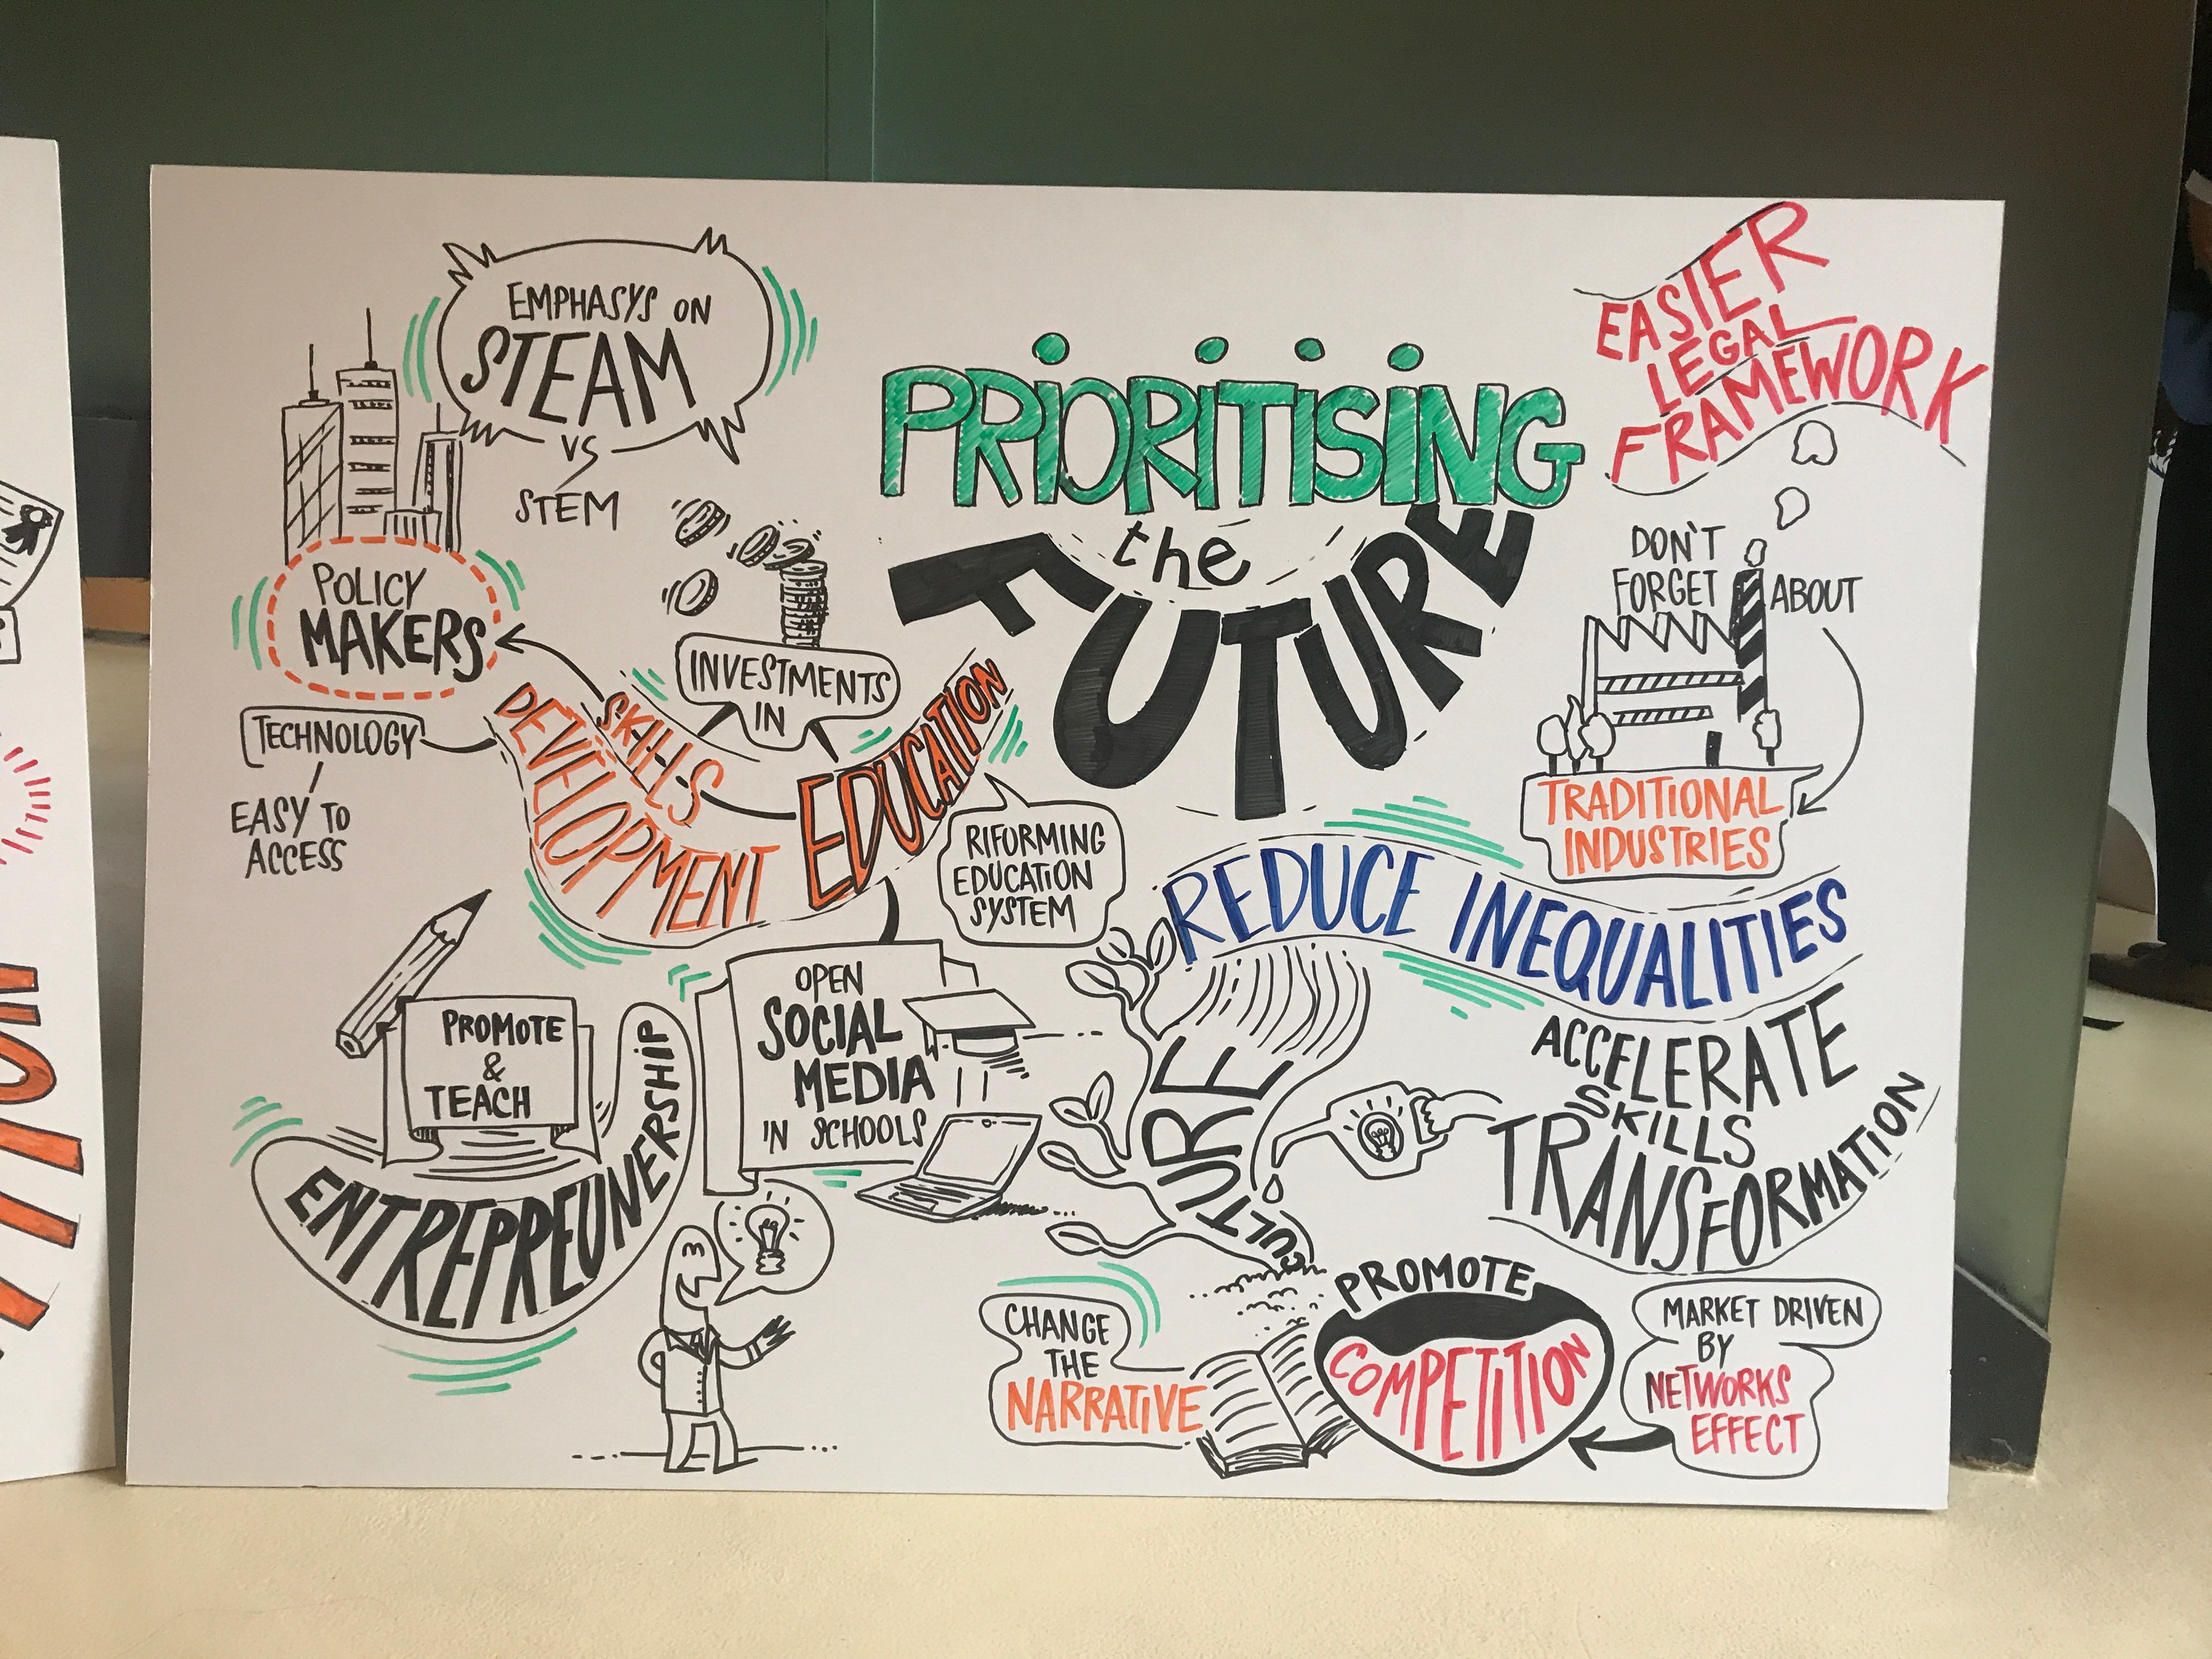 EMPHASYS ON
STEAM
VS
STEM
POLICY
MAKERS
TECHNOLOGY
EASY TO
ACCESS
INVESTMENTS
IN
SKILLS
DEVELOPMENT
EDUCATION
RIFORMING
EDUCATION
SYSTEM
PRIORITISING
the
FUTURE
EASIER
LEGAL
FRAMEWORK
DON'T
FORGET
ABOUT
TRADITIONAL
INDUSTRIES
REDUCE INEQUALITIES
PROMOTE
&
TEACH
ENTREPREUNERSHIP
OPEN
SOCIAL
MEDIA
IN SCHOOLS
CULTURE
ACCELERATE
SKILLS
TRANSFORMATION
CHANGE
THE
NARRATIVE
PROMOTE
COMPETITION
MARKET DRIVEN
BY
NETWORKS
EFFECT